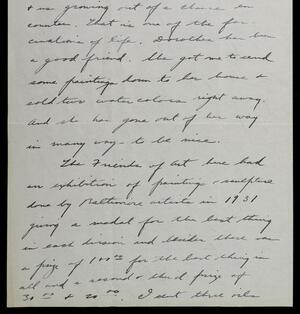 & is growing out of a chance en
counter. That is one of the fas
cinations of life. Dorothea has been
a good friend. She got me to send
some paintings down to her house &
sold two water colors right away.
And she has gone out of her way
in many ways to be nice.
The Friends of Art here had
an exhibition of painting & sculpture
done by Baltimore artists in 1931
giving a medal for the best thing
in each division and besides there was
a prize of 100.00 for the best thing in
all and a second & third prize of
30.00 & 20.00. I sent three oils